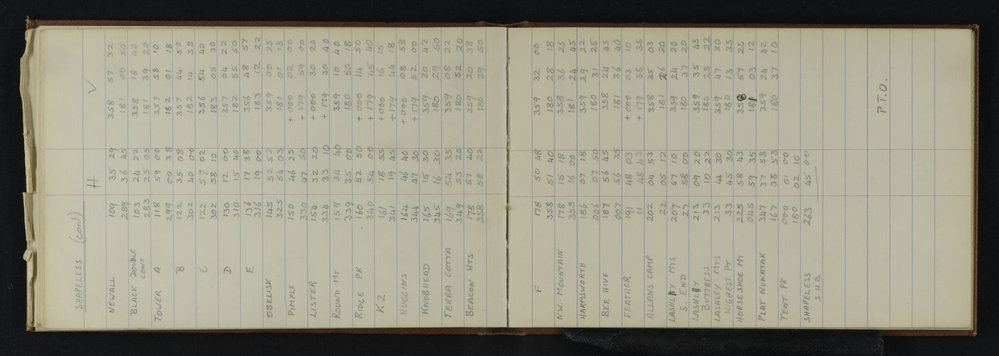 SHAPELESS (cont) H V
NEWALL 109 35 29 358 57 32
289 36 45 181 00 50
BLACK DOUBLE CONE 103 24 22 358 18 40
283 25 05 181 39 20
TOWER A 118 59 357 58 10
298 00 182 01 18
B 122 35 08 357 44 52
302 40 00 182 14 38
C 122 57 02 356 54 40
302 58 10 183 05 20
D 130 12 00 357 04 22
310 15 40 182 55 50
E 136 17 38 356 48 57
316 19 00 183 12 22
OBELISK 145 52 52 359 00 25
325 54 03 181 01 18
PIMPLE 150 46 25 +000 02 00
330 47 50 +179 59 00
LISTER 154 32 20 +000 30 20
334 33 10 +179 30 40
ROUND MT 159 34 40 359 10 40
339 35 00 180 50 18
RIDGE PK 160 52 50 +000 14 50
340 54 00 +179 45 40
K2 161 18 55 +000 16 15
341 19 45 +179 44 18
HUGGINS 164 46 40 +000 08 58
344 47 30 +179 52 00
KNOBHEAD 165 15 30 359 30 42
345 16 30 180 29 50
TERRA COTTA 169 54 35 359 08 22
349 55 20 180 52 20
BEACON HTS 178 57 40 359 20 38
358 58 22 180 39 50
F 178 50 48 359 32 00
358 51 40 180 28 18
N.W. MOUNTAIN 178 15 18 358 36 25
358 16 00 181 24 45
HARMSWORTH 186 07 18 359 29 22
006 07 50 180 31 25
BEE HIVE 187 56 45 358 24 45
007 56 35 181 36 20
FEATHER 191 48 03 +000 03 10
11 48 43 +179 58 35
ALLANS CAMP 202 04 53 358 35 03
22 05 12 181 26 20
LASHLEY MTS S. END 207 57 10 359 24 20
27 58 00 180 37 20
LASHLEY BUTTRESS 213 09 20 359 35 45
33 10 22 180 25 22
LASHLEY MTS HIGHEST PT 213 44 30 359 47 20
33 45 30 180 13 35
HORSESHOE MT 225 58 43 358 57 25
045 59 35 181 03 12
FLAT NUNATAK 347 37 53 359 24 42
167 38 58 180 37 10
TENT PK 000 01 00
180 02 10
SHAPELESS S H B 263 45 20
P.T.O.